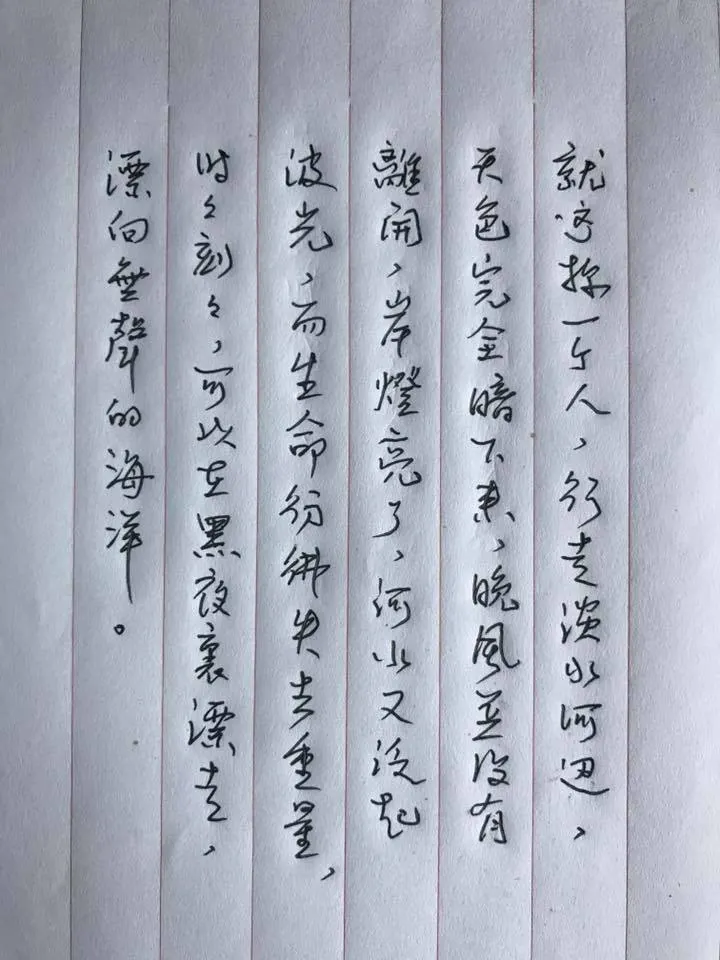 就只你一个人，行走淡水河边，
天色完全暗下来，晚風並沒有
離開，岸燈亮了，河水又泛起
波光，而生命彷彿失去重量，
时々刻々，可以在黑夜裏漂走，
漂向無聲的海洋。